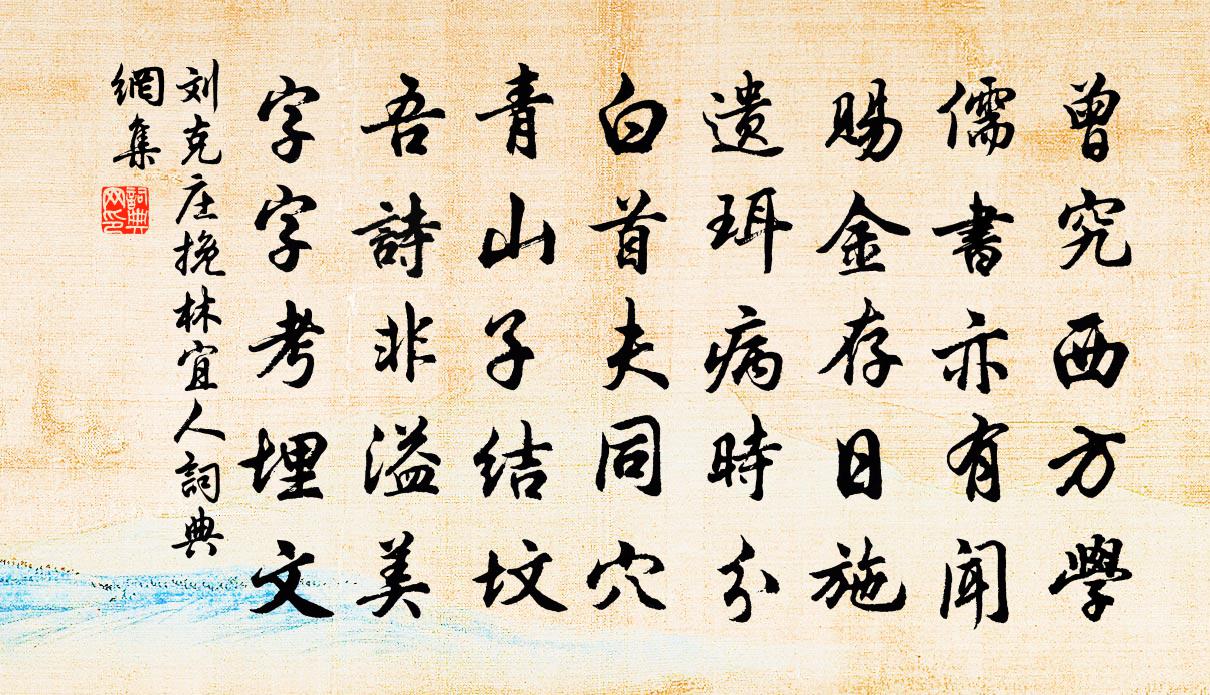 曾究西方學
儒書亦有闻
賜金存日施
遗珥病時分
白首夫同穴
青山子结坟
吾詩非溢美
字字考埋文
刘克庄挽林宜人詞典
網集
詞典
网印